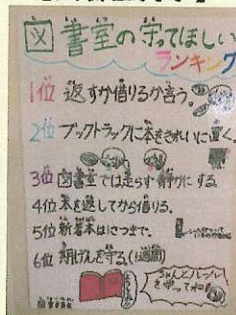 図書室の守ってほしい
ランキング
1位 返すか借りるか言う。
2位 ブックトラックに本をきれいに置く。
3位 図書室では走らず静かにする。
4位 本を返してから借りる。
5位 新着本は1さつまで。
6位 期げんを守る。(1週間)
ちゃんとルール
を守ってね!